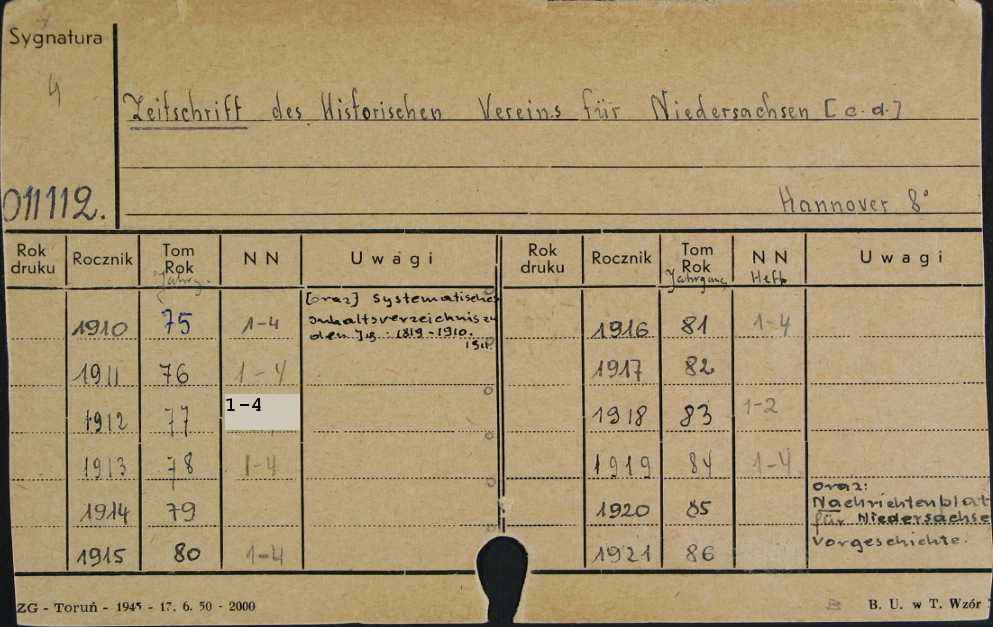 Sygnatura
4
Zeitschrift des Historischen Vereins für Niedersachsen [c.d.]
011112.
Hannover 8°
Rok druku Rocznik Tom Rok Jahrg. NN Uwagi Rok druku Rocznik Tom Rok Jahrgang NN Heft Uwagi
[oraz] Systematisches
Inhaltsverzeichnis zu
den Jg: 1819-1910.
1910 75 1-4 1916 81 1-4
1911 76 1-4 1917 82
1912 77 1-4 1918 83 1-2
1913 78 1-4 1919 84 1-4
oraz:
Nachrichtenblat
für Niedersachse
Vorgeschichte.
1914 79 1920 85
1915 80 1-4 1921 86
ZG - Toruń - 1945 - 17. 6. 50 - 2000 B. U. w T. Wzór